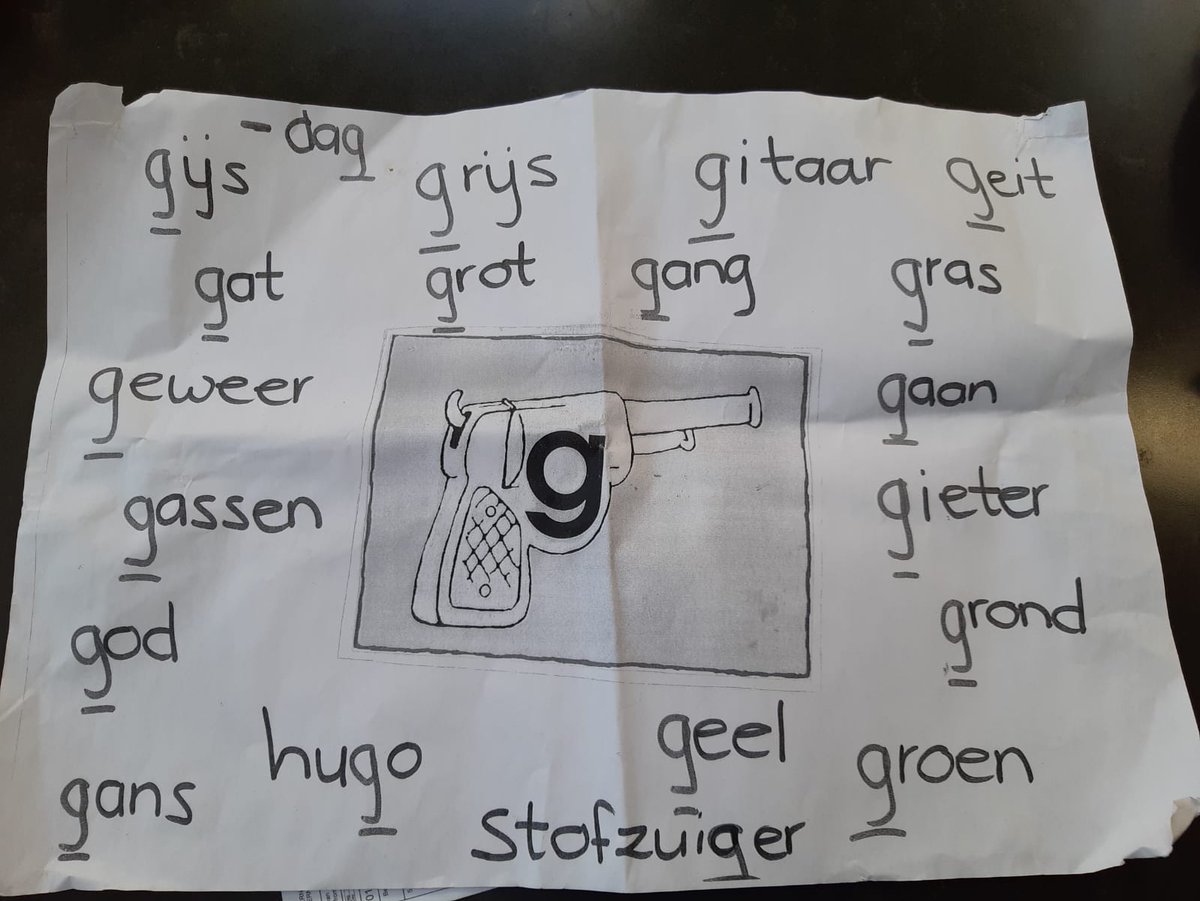 gijs - dag grijs gitaar geit
gat grot gang gras
geweer gaan
g
gassen gieter
god grond
hugo geel groen
gans
Stofzuiger